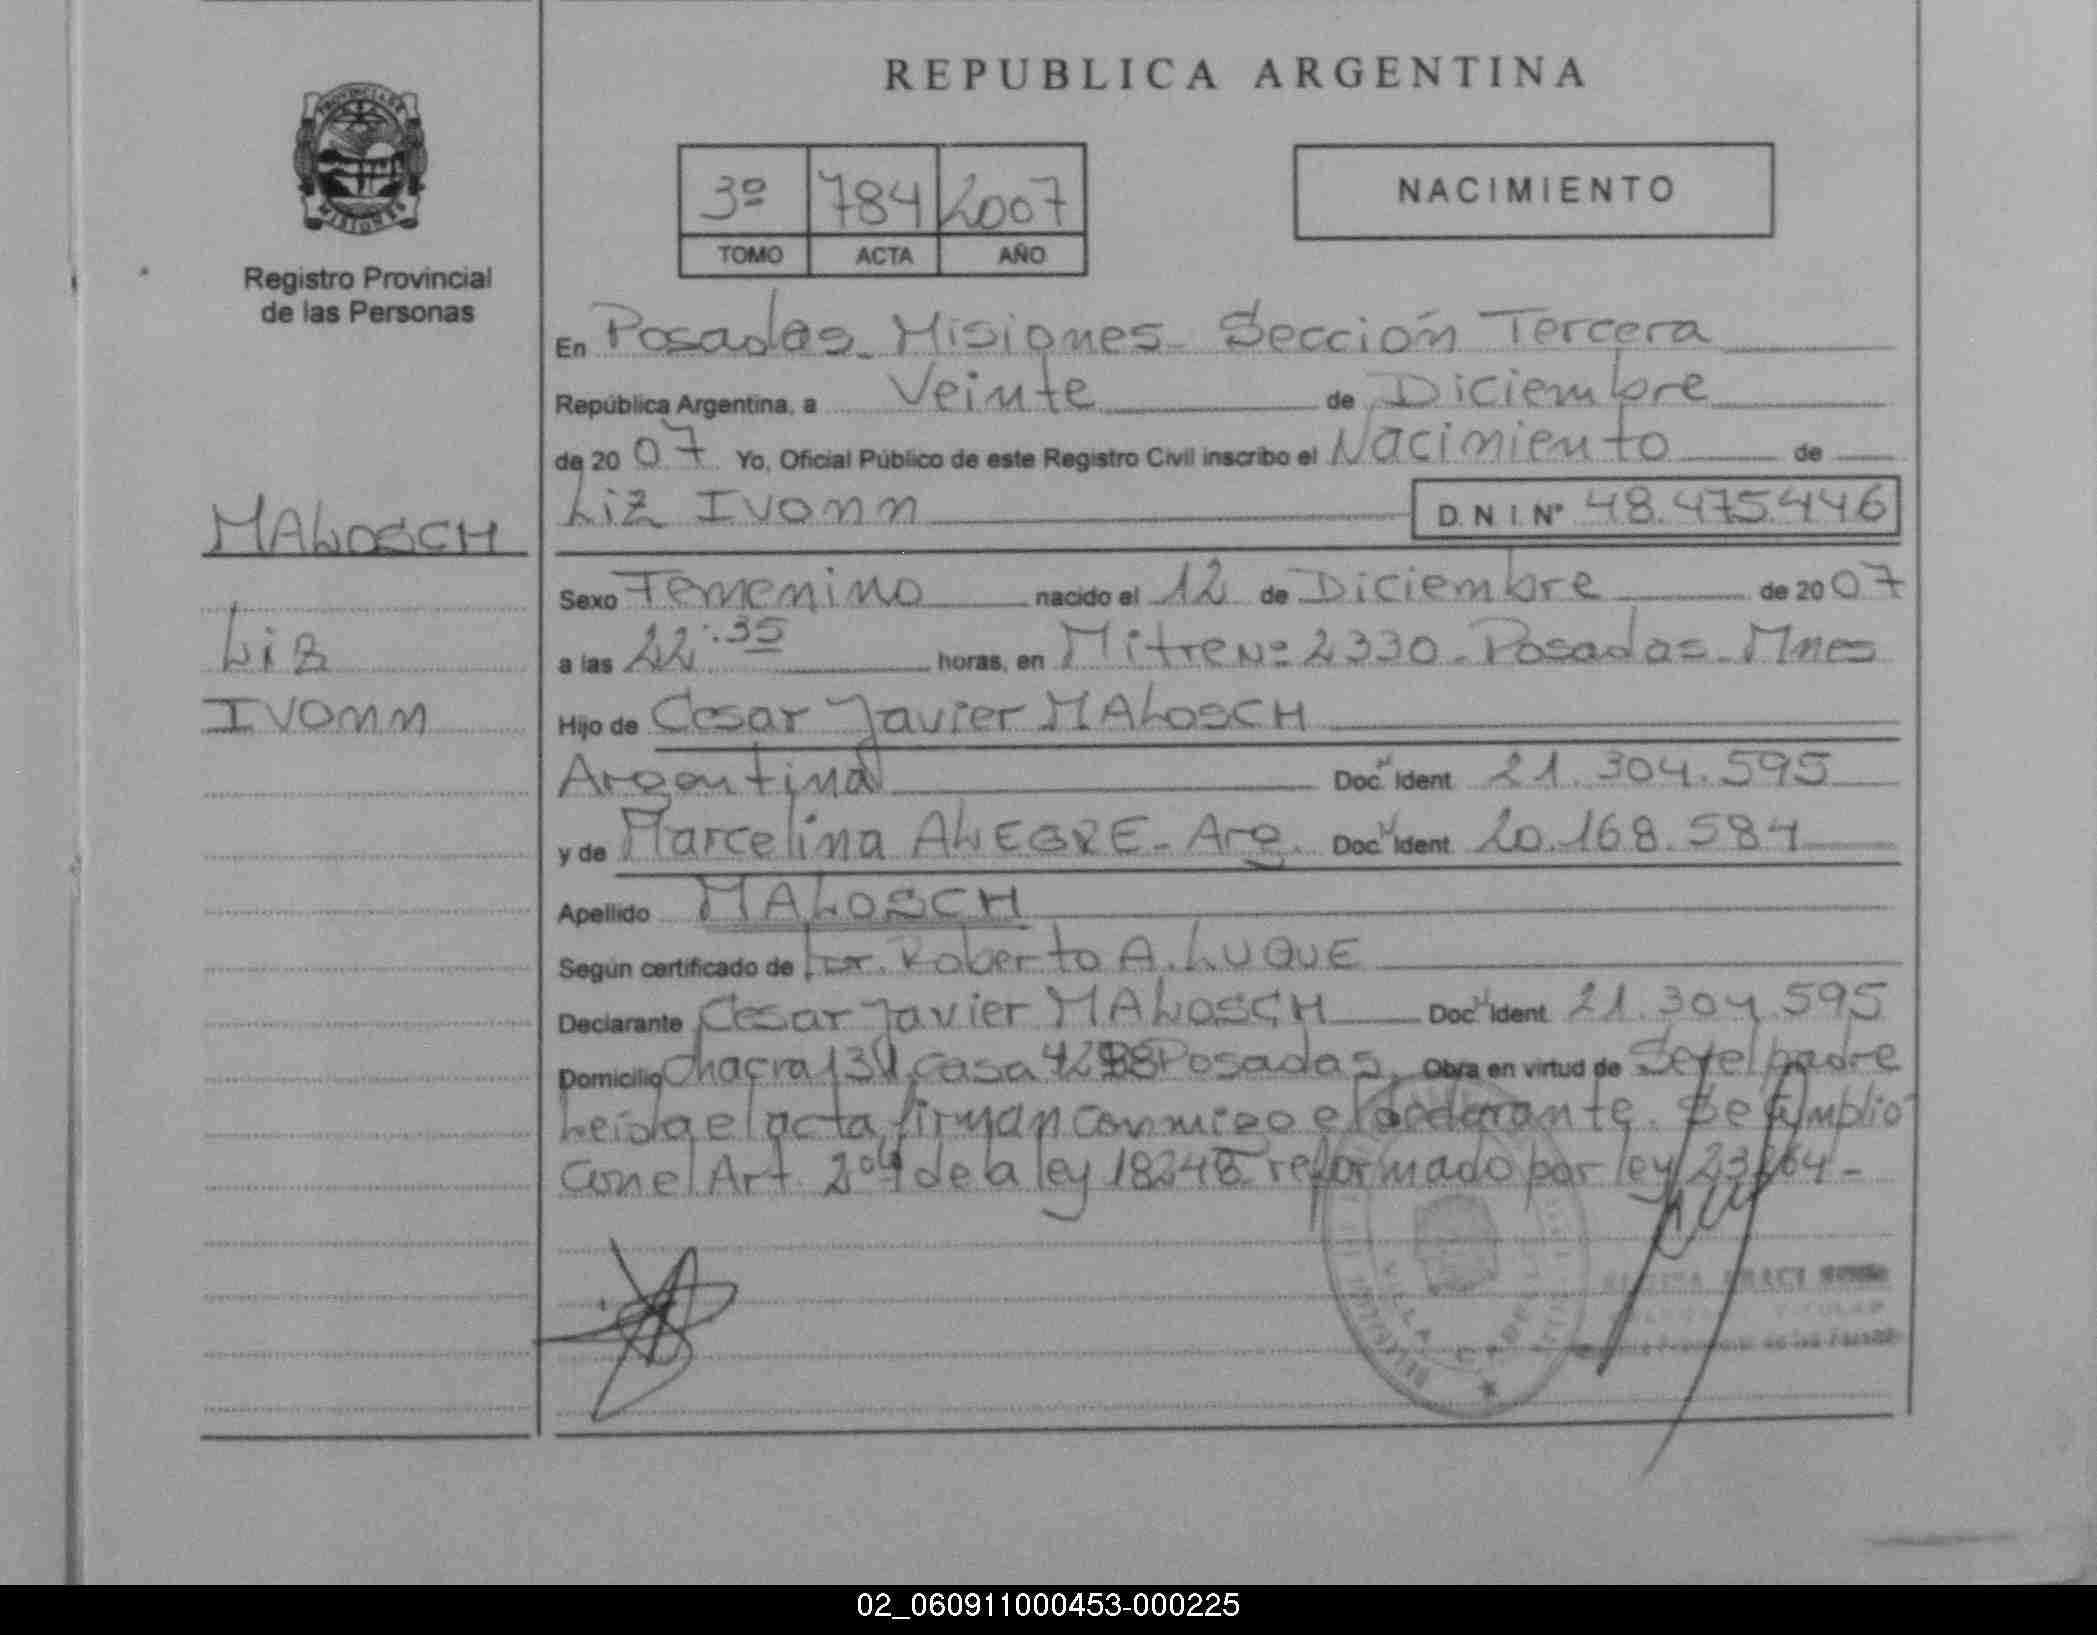 REPUBLICA ARGENTINA
PROVINCIA DE
MISIONES
Registro Provincial
de las Personas
3º 784 2007
TOMO ACTA AÑO
NACIMIENTO
En Posadas - Misiones - Sección Tercera
República Argentina, a Veinte de Diciembre
de 2007 Yo, Oficial Público de este Registro Civil inscribo el Nacimiento de
MALOSCH
Liz Ivonn D.N.I. Nº 48.475.446
Sexo Femenino nacido el 12 de Diciembre de 2007
Liz
a las 22:35 horas, en Mitre Nº 2330 - Posadas - Mnes
Ivonn
Hijo de Cesar Javier MALOSCH
Argentina Doc. Ident 21.304.595
y de Marcelina ALEGRE - Arg. Doc. Ident 20.168.584
Apellido MALOSCH
Según certificado de Dr. Roberto A. LUQUE
Declarante Cesar Javier MALOSCH Doc. Ident 21.304.595
Domicilio Chacra Casa Posadas. Obra en virtud de Ser el padre
Leida el acta, firman conmigo el declarante. Se cumplio
con el Art. 2º de a ley 18248 reformado por ley
VILLA CABELLO
02_060911000453-000225